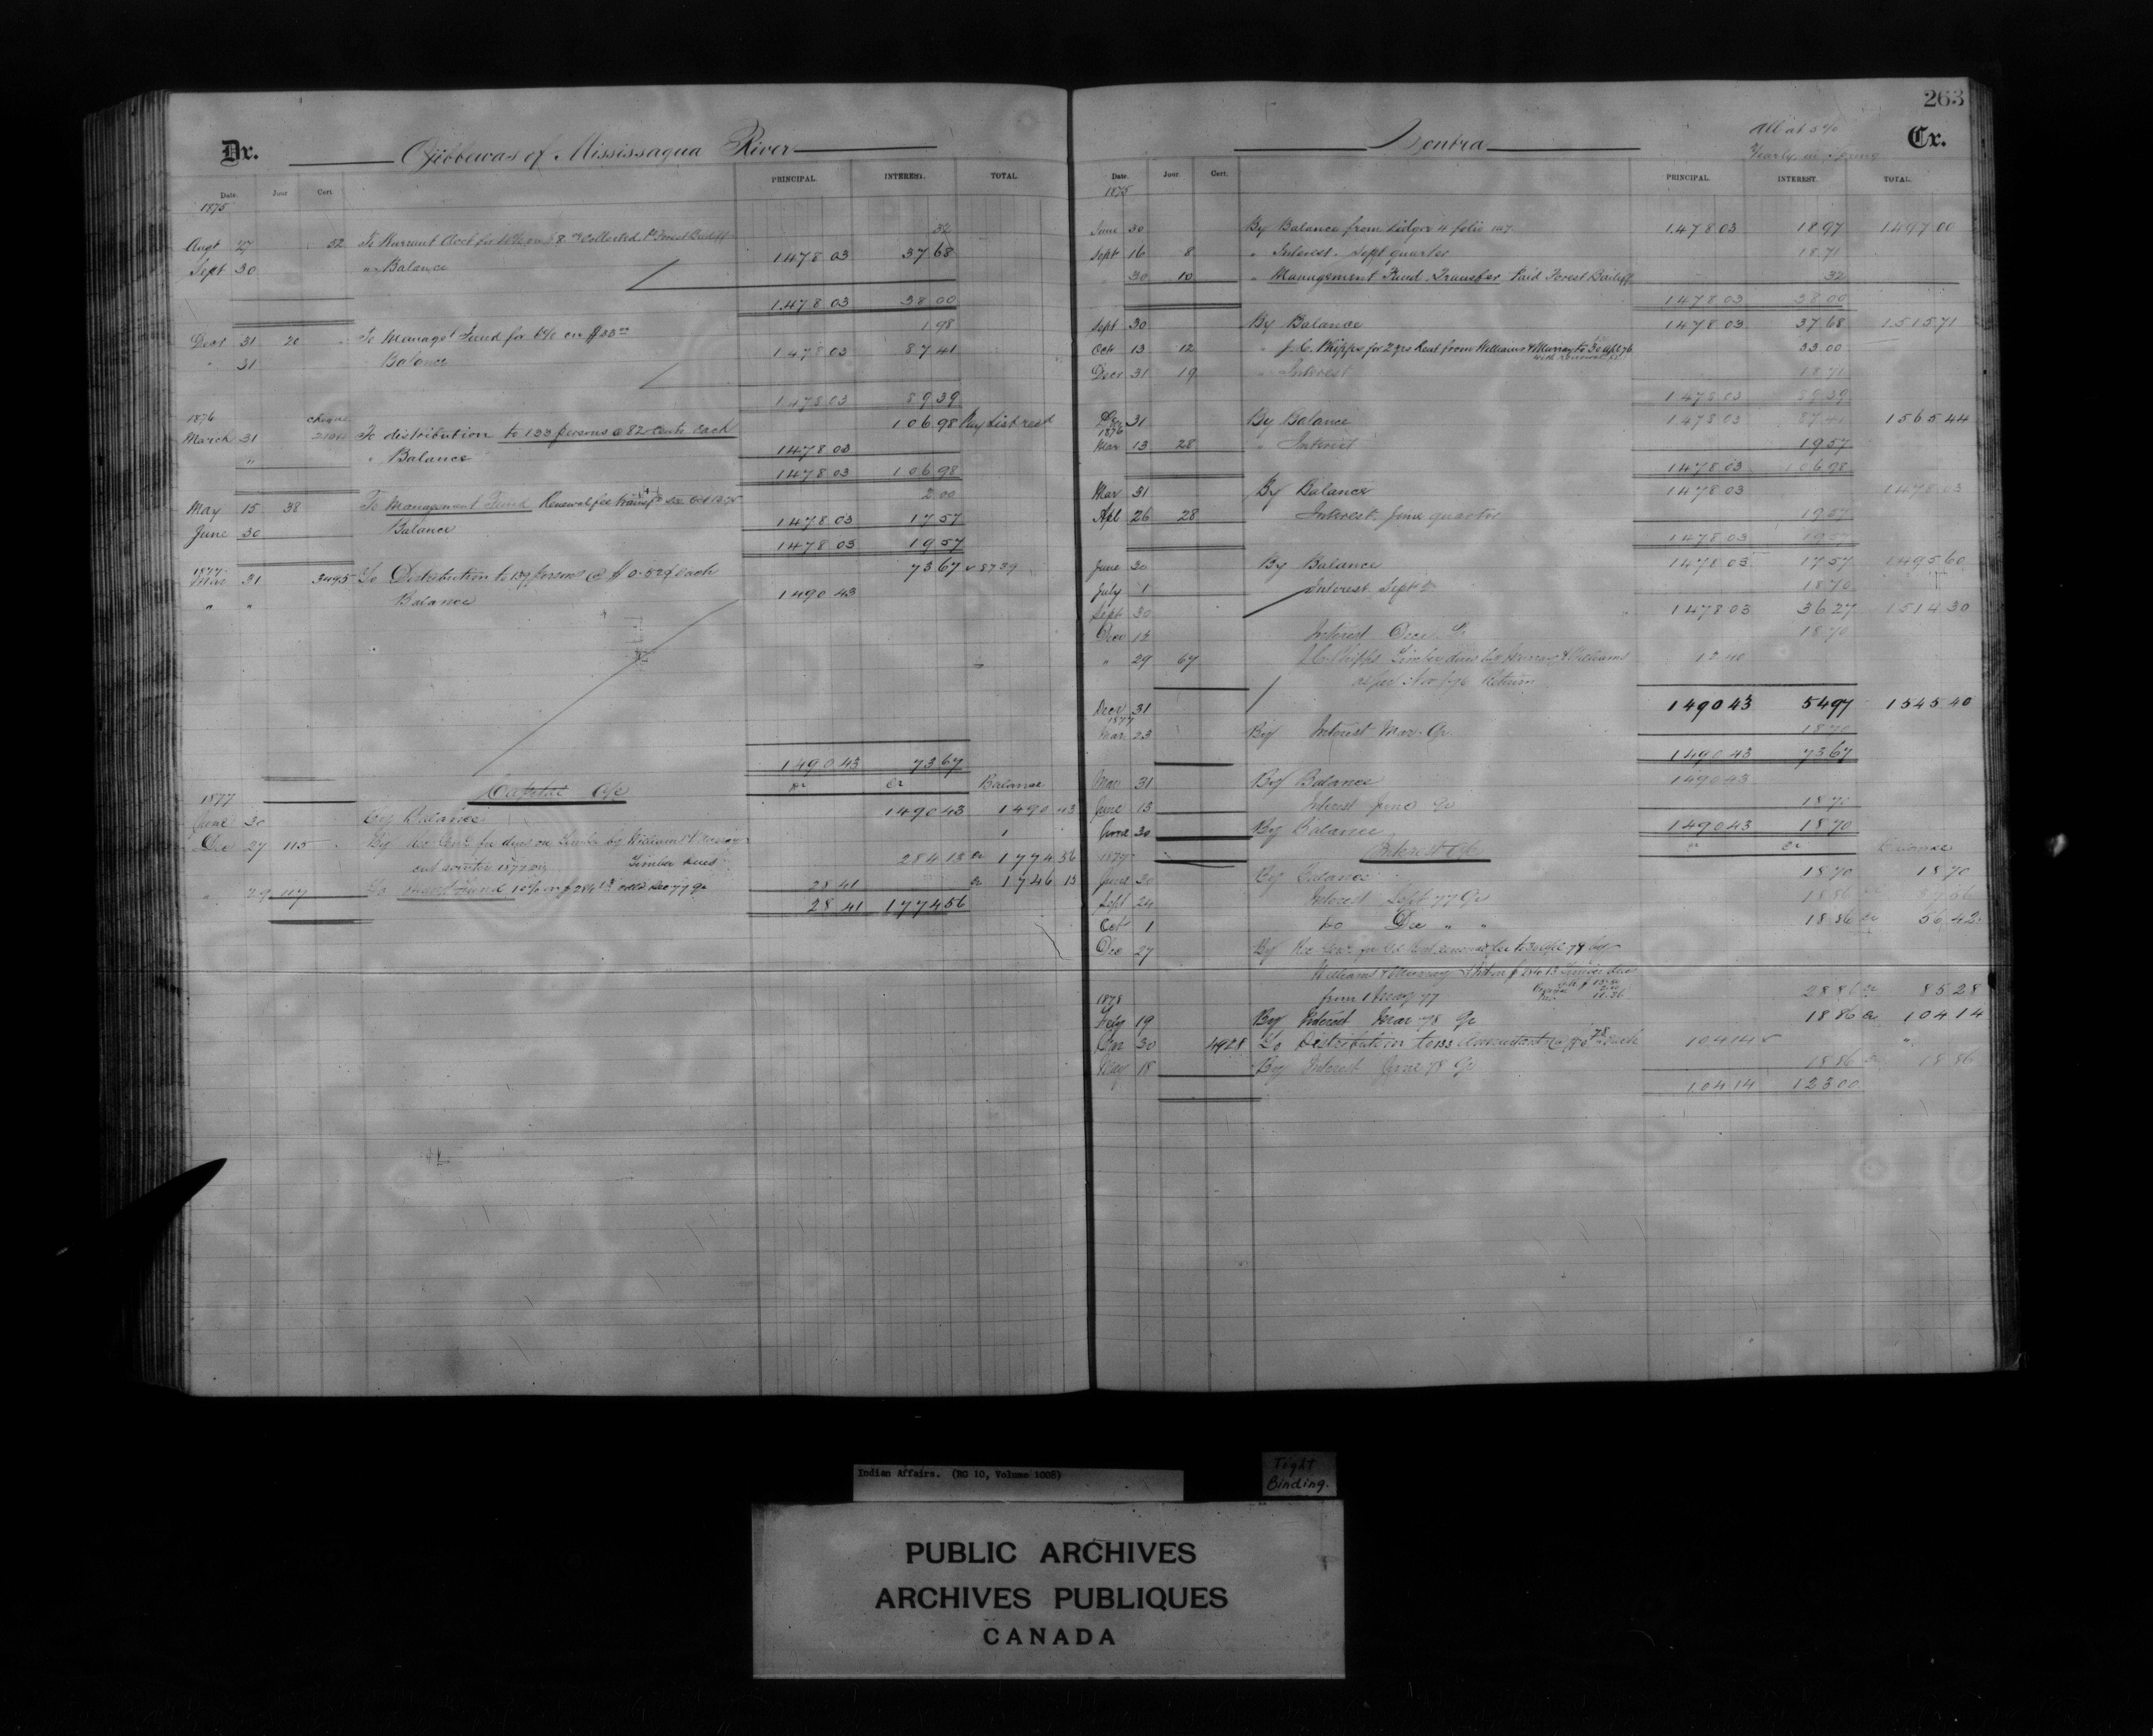 263
Dr. Ojibbewas of Mississaqua River
Date. Jour Cert PRINCIPAL. INTEREST. TOTAL.
1875
Augt 27 52 To Warrant Acct for 4% on 8 00 Collected Pd Forest Bailiff 32
Sept 30 " Balance 1478 03 37 68
1478 03 38 00
Decr 31 20 To Managt Fund for 6% on $33 00 1 98
" 31 Balance 1478 03 87 41
1478 03 89 39
1876 cheque
March 31 To distribution to 133 persons @ 82 cents each 106 98 Pay List recd
" " Balance 1478 03
1478 03 106 98
May 15 38 To Management Fund Renewal fee 2 00
June 30 Balance 1478 03 17 57
1478 03 19 57
1877
Mar 31 3495 To Distribution to 139 persons @ $0.53 each 73 67
" " Balance 1490 43
1490 43 73 67
Capital A/c Dr Cr Balance
1877
June 30 By Balance 1490 43 1490 43
Dec 27 115 By Rec Genl for dues on Timber by Williams & Murray
cut winter 1877 Timber dues 284 13 Cr 1774 56
" 29 117 To Managt Fund 10% on $284 13 Colld Dec 77 Qr 28 41 Cr 1746 15
28 41 1774 56
Contra Cr.
All at 5%
Yearly in Spring
Date. Jour. Cert. PRINCIPAL. INTEREST. TOTAL.
1875
June 30 By Balance from Ledger 4 folio 147 1478 03 18 97 1497 00
Sept 16 8 " Interest. Sept quarter 18 71
" 30 10 " Management Fund. Transfer Paid Forest Bailiff 32
1478 03 38 00
Sept 30 By Balance 1478 03 37 68 1515 71
Oct 13 12 " J. C. Phipps for 2 yrs Rent from Williams & Murray to 30 Apl 76 33 00
Decr 31 19 " Interest 18 71
1478 03 89 39
Dec 31 By Balance 1478 03 87 41 1565 44
1876
Mar 13 28 " Interest 19 57
1478 03 106 98
Mar 31 By Balance 1478 03 1478 03
Apl 26 28 Interest. June quarter 19 57
1478 03 19 57
June 30 By Balance 1478 03 17 57 1495 60
July 1 Interest Sept Qr 18 70
Sept 30 1478 03 36 27 1514 30
Dec 13 Interest Decr Qr 18 70
" 29 67 J C Phipps Timber dues by Murray & Williams 12 40
as per Nov 1876 Return
Decr 31 1490 43 54 97 1545 40
1877
Mar 23 By Interest Mar. Qr. 18 70
1490 43 73 67
Mar 31 By Balance 1490 43
June 13 Interest June Qr 18 70
June 30 By Balance 1490 43 18 70
1877 Interest A/c Dr Cr Balance
June 30 By Balance 18 70 18 70
Sept 24 Interest Sept 77 Qr 18 86 37 56
Oct 1 Do Dec " " 18 86 Cr 56 42
Dec 27 By Rec Genl for Gd Rent renewal fee to 30 Apl 78 by
Williams & Murray & Int on $284 13 Timber dues
from 1 May 77 28 86 Cr 85 28
1878
Feby 19 By Interest Mar 78 Qr 18 86 Cr 104 14
Mar 30 4928 To Distribution to 133 @ $0 78 each 104 14 "
May 18 By Interest June 78 Qr 18 86 Cr 18 86
104 14 123 00
Indian Affairs. (RG 10, Volume 1008)
Tight
Binding.
PUBLIC ARCHIVES
ARCHIVES PUBLIQUES
CANADA